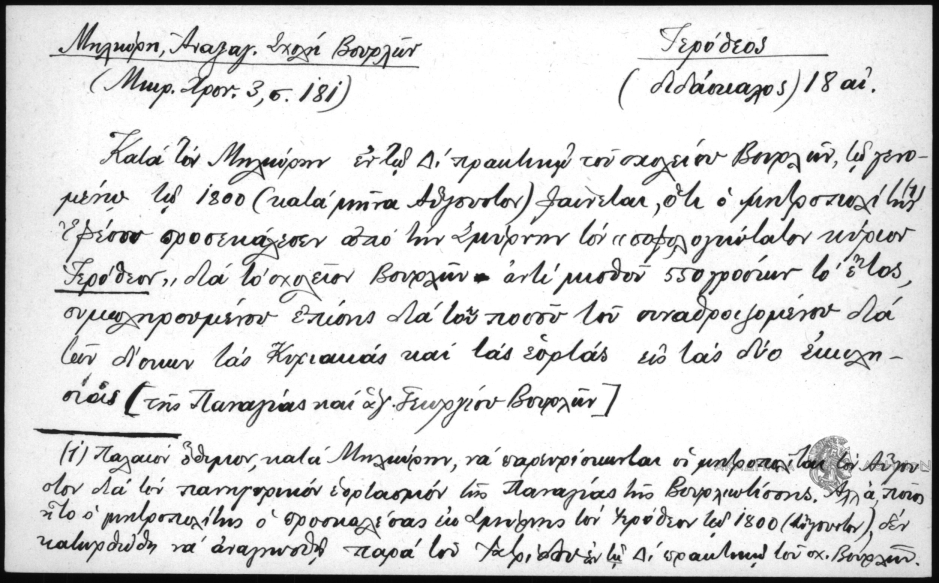 Μηλιώρη, Αναγαγ. Σχολή Βουρλῶν
Ἱερόθεος
(Μικρ. Χρον. 3, σ. 181)
(διδάσκαλος) 18 αἰ.
Κατά τόν Μηλιώρην ἐν τῷ Δ΄ πρακτικῷ τοῦ σχολείου Βουρλῶν, τῷ γενο-
μένῳ τῷ 1800 (κατά μῆνα Αὔγουστον) φαίνεται, ὅτι ὁ μητροπολίτης (1)
Ἐφέσου προσεκάλεσεν ἀπό τήν Σμύρνην τόν "σοφολογιώτατον κύριον
Ἱερόθεον" διά τό σχολεῖον Βουρλῶν ἀντί μισθοῦ 550 γροσίων τό ἔτος,
συμπληρουμένου ἐπίσης διά τοῦ ποσοῦ τοῦ συναθροιζομένου διά
τῶν δίσκων τάς Κυριακάς καί τάς ἑορτάς εἰς τάς δύο ἐκκλη-
σίας [τῆς Παναγίας καί ἁγ. Γεωργίου Βουρλῶν]
(1) Παλαιόν ἔθιμον, κατά Μηλιώρην, νά παρευρίσκωνται οἱ μητροπολῖται τόν Αὔγου-
στον διά τόν πανηγυρικόν ἑορτασμόν τῆς Παναγίας τῆς Βουρλιωτίσσης. Ἀλλά, ποῖος
ἦτο ὁ μητροπολίτης ὁ προσκαλέσας ἐκ Σμύρνης τόν Ἱερόθεον τῷ 1800 (Αὔγουστον), δέν
κατωρθώθη νά ἀναγνωσθῇ παρά τοῦ ἐν τῷ Δ΄ πρακτικῷ τοῦ σχ. Βουρλῶν.